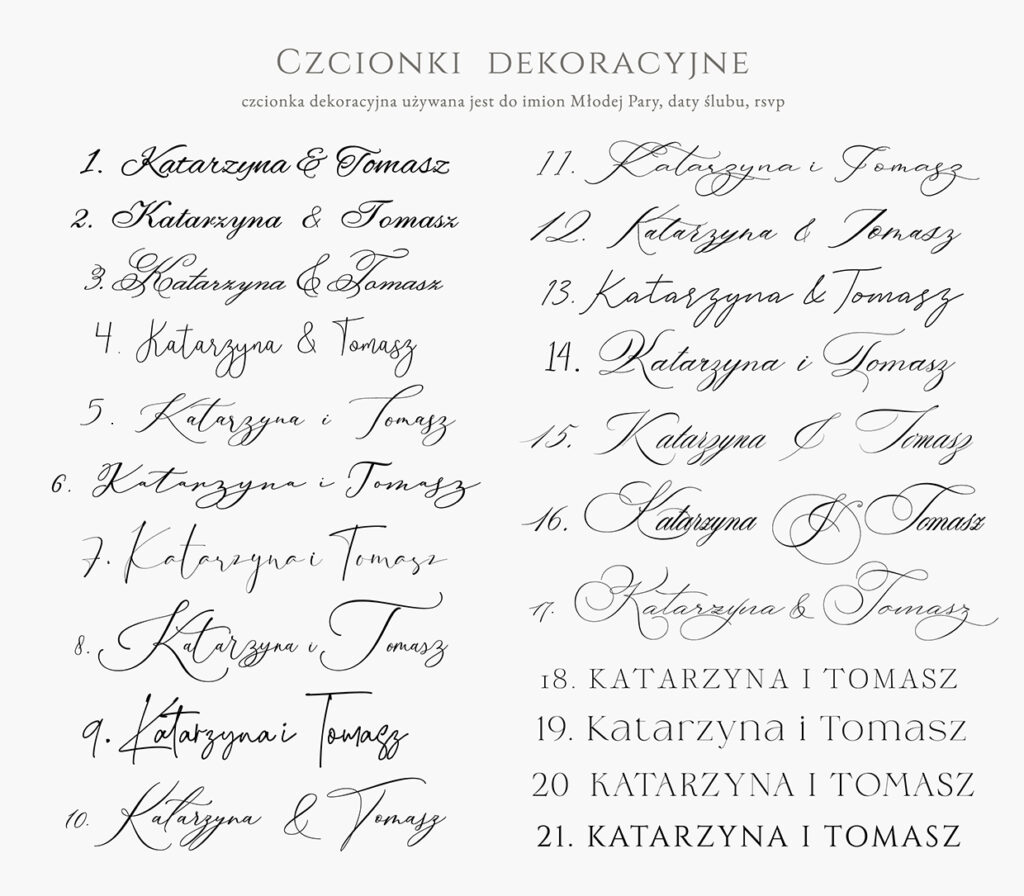 Czcionki dekoracyjne
czcionka dekoracyjna używana jest do imion Młodej Pary, daty ślubu, rsvp
1. Katarzyna & Tomasz
2. Katarzyna & Tomasz
3. Katarzyna & Tomasz
4. Katarzyna & Tomasz
5. Katarzyna i Tomasz
6. Katarzyna i Tomasz
7. Katarzyna i Tomasz
8. Katarzyna i Tomasz
9. Katarzyna i Tomasz
10. Katarzyna & Tomasz
11. Katarzyna i Tomasz
12. Katarzyna & Tomasz
13. Katarzyna & Tomasz
14. Katarzyna i Tomasz
15. Katarzyna & Tomasz
16. Katarzyna & Tomasz
17. Katarzyna & Tomasz
18. KATARZYNA I TOMASZ
19. Katarzyna i Tomasz
20 KATARZYNA I TOMASZ
21. KATARZYNA I TOMASZ